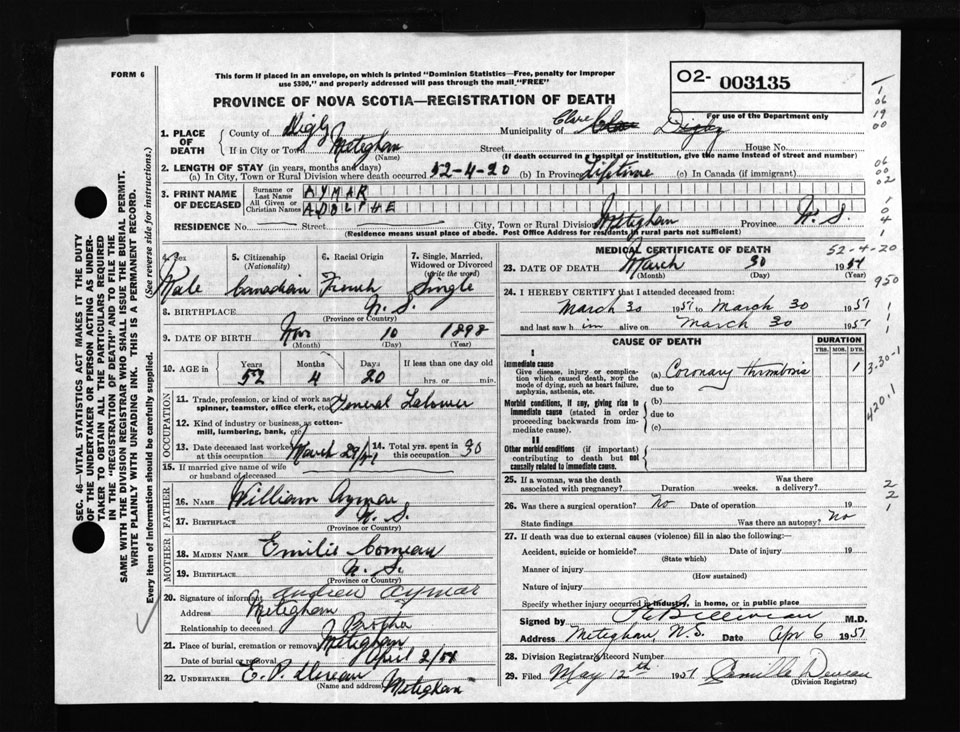 FORM 6
This form if placed in an envelope, on which is printed "Dominion Statistics—Free, penalty for improper
use $300," and properly addressed will pass through the mail "FREE"
O2- 003135
PROVINCE OF NOVA SCOTIA—REGISTRATION OF DEATH
For use of the Department only
1. PLACE OF DEATH
County of Digby Municipality of Clare Clare Digby
If in City or Town Meteghan (Name) Street House No.
(If death occurred in a hospital or institution, give the name instead of street and number)
2. LENGTH OF STAY (in years, months and days)
(a) In City, Town or Rural Division where death occurred 52-4-20 (b) In Province Lifetime (c) In Canada (if immigrant)
3. PRINT NAME OF DECEASED
Surname or Last Name AYMAR
All Given or Christian Names ADOLPHE
RESIDENCE No. Street City, Town or Rural Division Meteghan Province N.S.
(Residence means usual place of abode. Post Office Address for residents in rural parts not sufficient)
4. Sex Male
5. Citizenship (Nationality) Canadian
6. Racial Origin French
7. Single, Married, Widowed or Divorced (write the word) Single
8. BIRTHPLACE N.S.
(Province or Country)
9. DATE OF BIRTH Nov 10 1898
(Month) (Day) (Year)
10. AGE in Years 52 Months 4 Days 20 If less than one day old hrs. or min.
OCCUPATION
11. Trade, profession, or kind of work as spinner, teamster, office clerk, etc. General Labourer
12. Kind of industry or business, as cotton-mill, lumbering, bank, etc.
13. Date deceased last worked at this occupation March 29/51
14. Total yrs. spent in this occupation 30
15. If married give name of wife or husband of deceased
FATHER
16. NAME William Aymar
17. BIRTHPLACE N.S.
(Province or Country)
MOTHER
18. MAIDEN NAME Emilie Comeau
19. BIRTHPLACE N.S.
(Province or Country)
20. Signature of informant Andrew Aymar
Address Meteghan
Relationship to deceased Brother
21. Place of burial, cremation or removal Meteghan
Date of burial or removal April 2/51
22. UNDERTAKER E. P.
(Name and address) Meteghan
MEDICAL CERTIFICATE OF DEATH
52-4-20
23. DATE OF DEATH March 30 1951
(Month) (Day) (Year)
24. I HEREBY CERTIFY that I attended deceased from:
March 30 1951 to March 30 1951
and last saw h im alive on March 30 1951
CAUSE OF DEATH
DURATION
YRS. MOS. DYS.
I
Immediate cause
Give disease, injury or complication which caused death, not the mode of dying, such as heart failure, asphyxia, asthenia, etc.
(a) Coronary thrombosis 1
due to
Morbid conditions, if any, giving rise to immediate cause (stated in order proceeding backwards from immediate cause)
(b)
due to
(c)
II
Other morbid conditions (if important) contributing to death but not causally related to immediate cause.
950
3-30-1
420.1
25. If a woman, was the death associated with pregnancy? Duration weeks. Was there a delivery?
26. Was there a surgical operation? No Date of operation 19
State findings Was there autopsy? No
27. If death was due to external causes (violence) fill in also the following:
Accident, suicide or homicide? Date of injury 19
(State which)
Manner of injury
(How sustained)
Nature of injury
Specify whether injury occurred in industry, in home, or in public place
Signed by M.D.
Address Meteghan, N.S. Date Apr 6 1951
28. Division Registrar's Record Number
29. Filed May 12th 1951 Camille
(Division Registrar)
SEC. 46—VITAL STATISTICS ACT MAKES IT THE DUTY
OF THE UNDERTAKER OR PERSON ACTING AS UNDER-
TAKER TO OBTAIN ALL THE PARTICULARS REQUIRED
IN THE "REGISTRATION OF DEATH" AND TO FILE THE
SAME WITH THE DIVISION REGISTRAR WHO SHALL ISSUE THE BURIAL PERMIT.
WRITE PLAINLY WITH UNFADING INK. THIS IS A PERMANENT RECORD.
Every item of information should be carefully supplied. (See reverse side for instructions.)
1
06
19
00
06
00
02